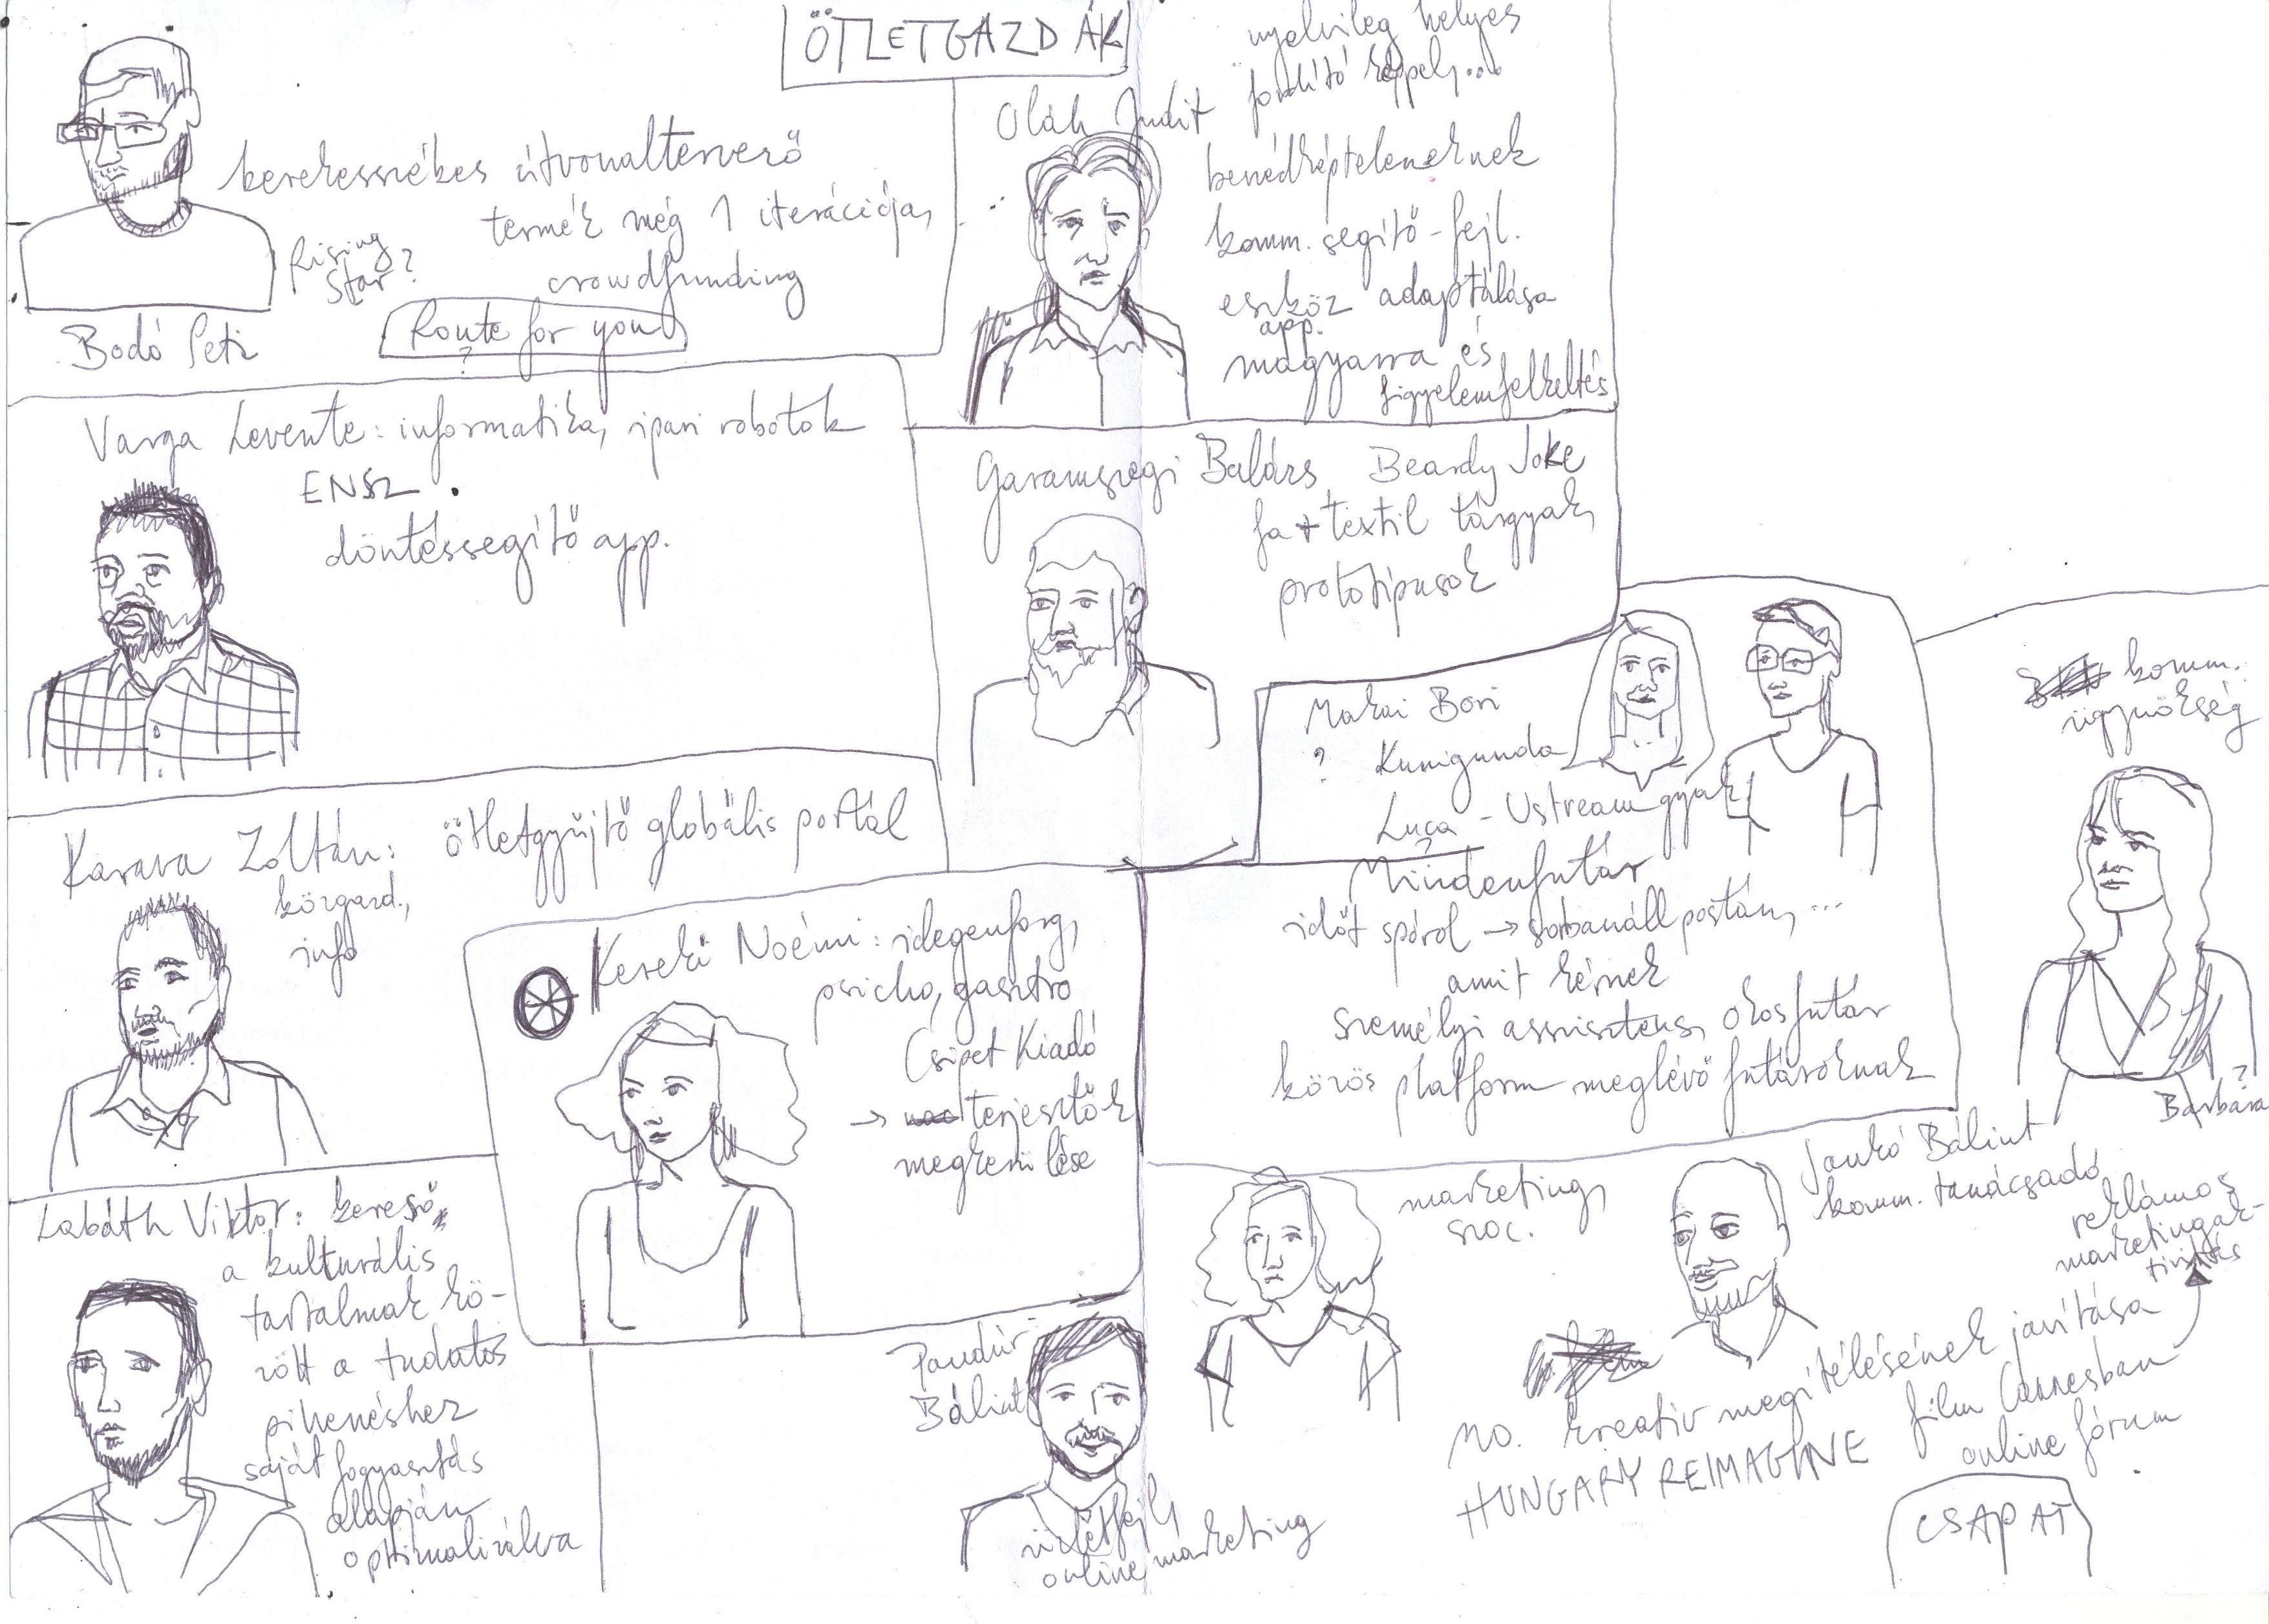 ÖTLETGAZDÁK
kerekesszékes útvonaltervező
termék még 1 iterációja,
crowdfunding
Rising
Star?
Route for you
?
Bodó Peti
Oláh Judit
nyelvileg helyes
fordító képpel,...
beszédképteleneknek
komm. segítő-fejl.
eszköz adaptálása
app.
magyarra és
figyelemfelkeltés
Varga Levente: informatika, ipari robotok
ENSZ
döntéssegítő app.
Garamszegi Balázs Beardy Joke
fa + textil tárgyak,
prototípusok
Makai Bori
? Kunigunda
Luca - Ustream gyak.
?
Mindenfutár
időt spórol → sorbanáll postán, ...
amit kérnek
személyi asszisztens, okosfutár
közös platform meglévő futároknak
komm.
ügynökség
?
Barbara
Karava Zoltán: ötletgyűjtő globális portál
közgazd.,
info
Kereki Noémi: idegenforg,
psicho, gasztro
Csipet Kiadó
→ terjesztők
megkerülése
Labáth Viktor: kereső,
a kulturális
tartalmak kö-
zött a tudatos
pihenéshez
saját fogyasztás
alapján
optimalizálva
Pandúr
Bálint
üzletfejl,
online marketing
marketing,
szoc.
Jankó Bálint
komm. tanácsadó
reklámos
marketingak-
tivitás
MO. kreatív megítélésének javítása
HUNGARY REIMAGINE
film Cannesban
online fórum
CSAPAT